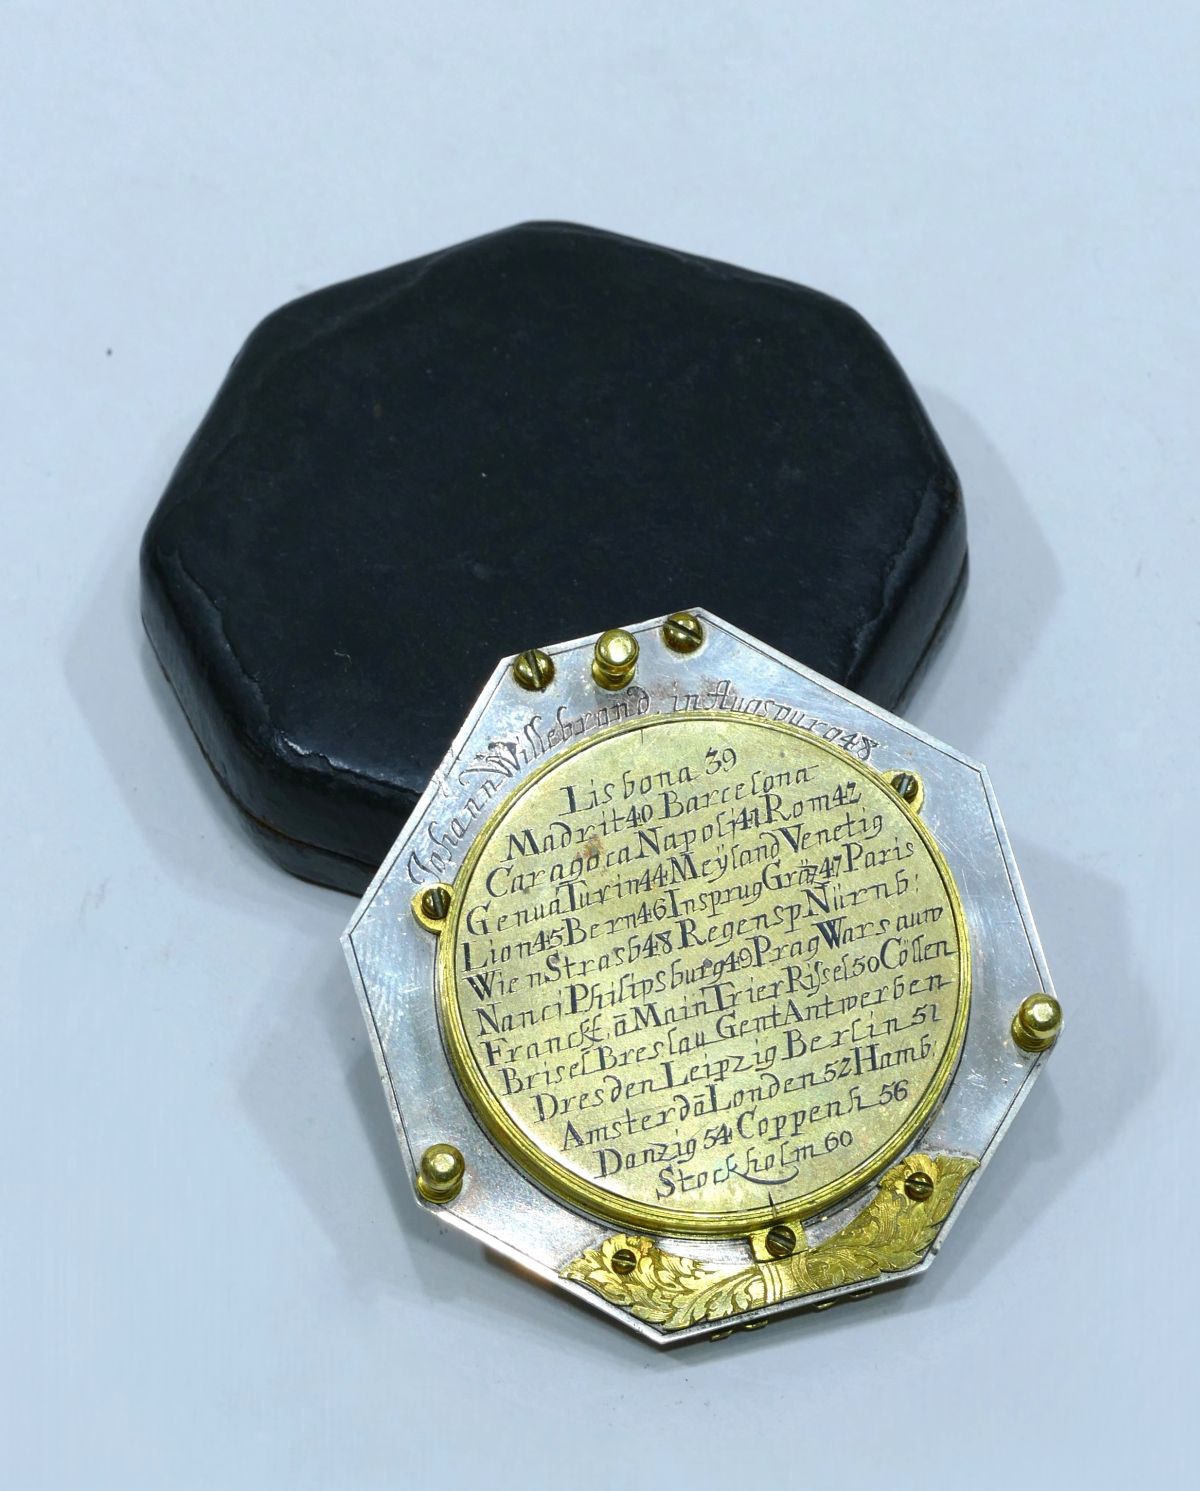 Johann Willebrand in Augspurg 48
Lisbona 39
Madrit 40 Barcelona
Caragoca Napoli 41 Rom 42
Genua Turin 44 Meÿland Venetig
Lion 45 Bern 46 Insprug Gräz 47 Paris
Wien Strasb 48 Regensp Nürnb:
Nanci Philipsburg 49 Prag Warsauw
Franckf. ā Main Trier Rissel 50 Cöllen
Brisel Breslau Gent Antwerben
Dresden Leipzig Berlin 51
Amsterdā Londen 52 Hamb:
Danzig 54 Coppenh 56
Stockholm 60